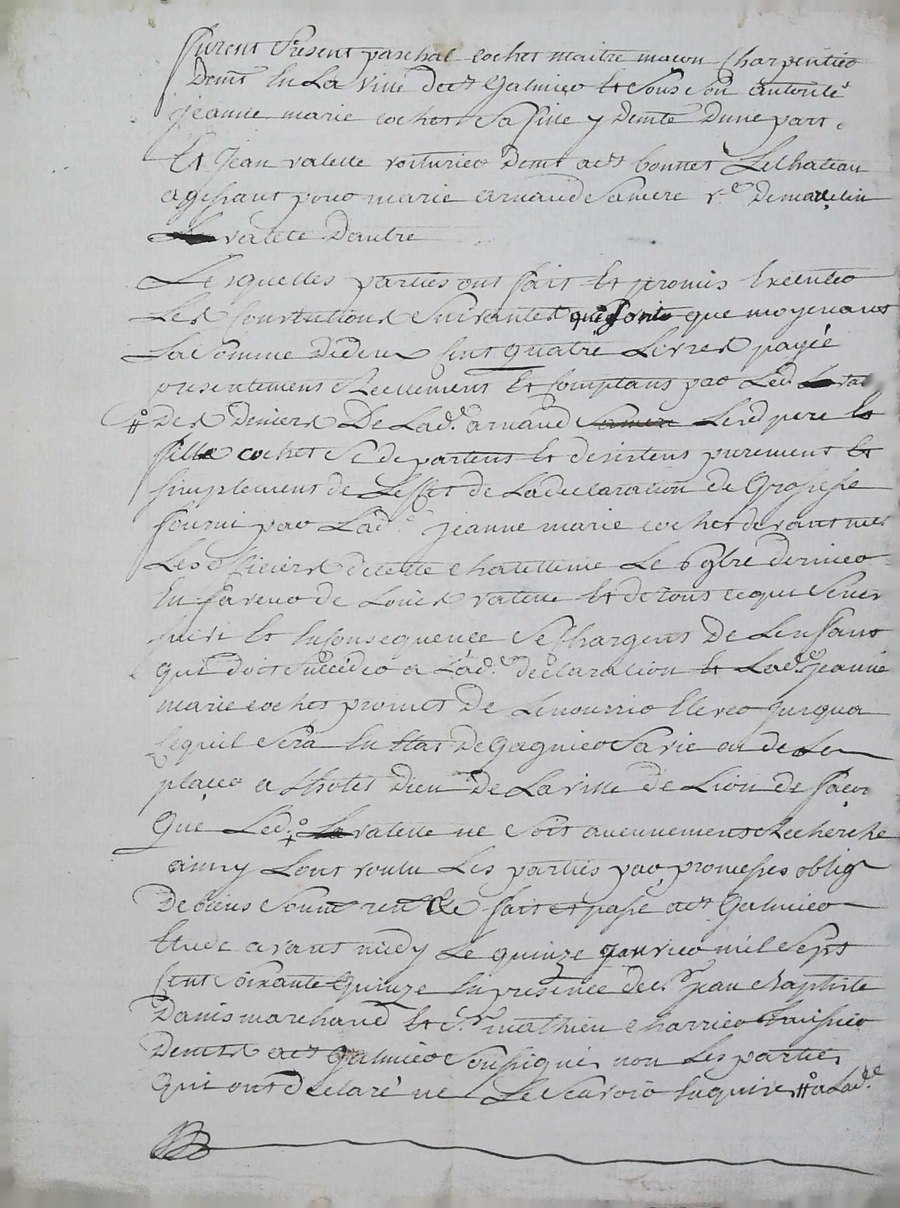 furent présent paschal cochet maitre macon charpentier
Demt en La ville de st Galmier et sous son autorité
jeanne marie cochet sa fille y Demte Dune part.
Et Jean valette voiturier Demt a st bonnet Le Chateau
agissant pour marie arnaud sa mere ve De
valete Dautre
Lesquelles parties ont fait et promis Executer
Les Conventions suivantes que moyenant
La somme de deux Cent quatre Livres payée
presentement Reellement Et Comptant par Led
Des Deniers De Lade arnaud Lesd pere et
fille cochet se departent et desistent purement et
simplement de Leffet de La declaration de Grossesse
fourni par Lade jeanne marie cochet devant mrs
Les officiers de cette chatellenie Le 6 9bre dernier
En faveur de Louis valette Et de tous ce qui sen est
suivi Et En Consequence se Chargent De Lenfant
qui doit succéder a Lade déclaration et Lade jeanne
marie cochet promet De Le nourrir Elever jusqua
ce quil sera En Etat De Gagner sa vie ou de Le
placer a Lhotel Dieu De La ville de Lion de facon
Que Led. valette ne soit aucunement Recherché
ainsy Lont voulu Les parties par promesses oblig
De biens soumr renc &c fait et passé a st Galmier
Etude avant midy Le quinze janvier mil sept
Cent soixante quinze En presence de sr jean Baptiste
Danis marchand et sr mathieu charrier huissier
Demts a st Galmier soussignés non Les parties
qui ont declaré ne Le scavoir Enquises # a Lade